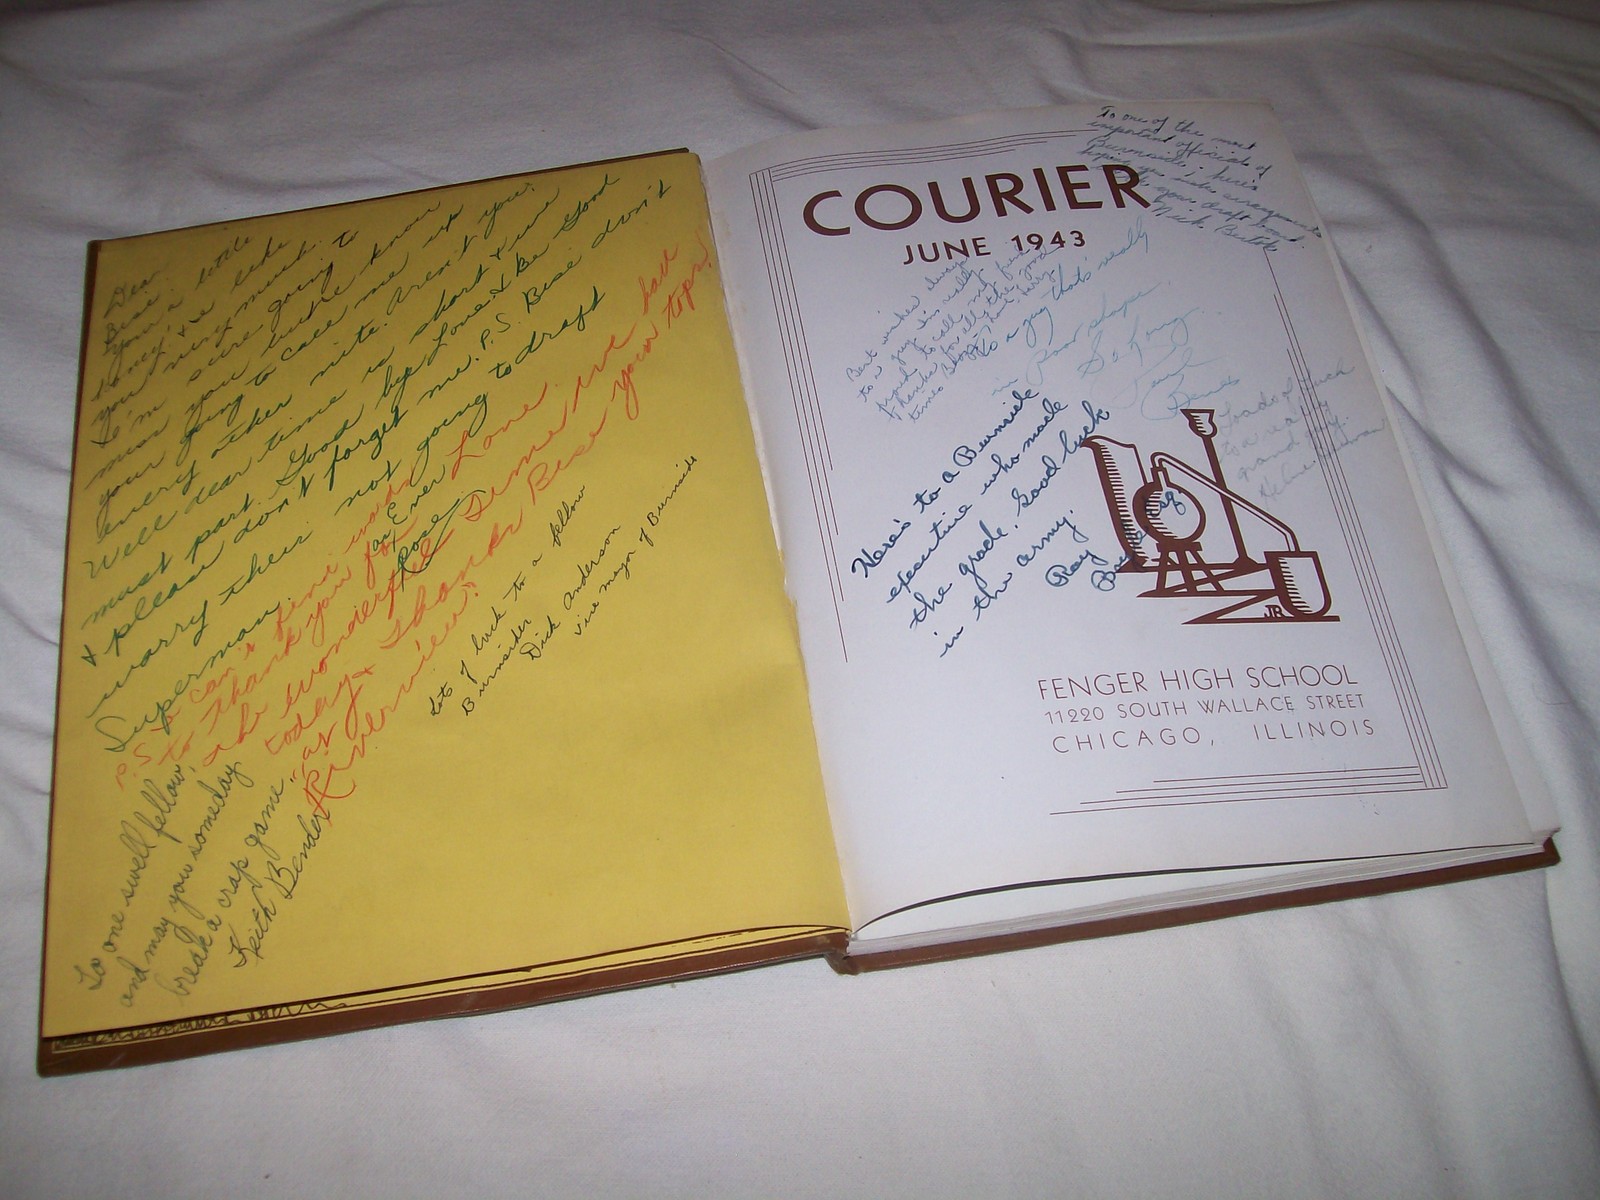 Dear
Bise
your a little
honey & I like
you very much.
I'm sure going to
miss you but I know
your going to call me up
every other nite. Aren't you.
Well dear time is short & we
must part. Good bye Love & Be Good
& please don't forget me. P.S. Bise don't
worry their not going to draft
Superman.
Love
Rose
P.S. I can't find words
to thank you for
the wonderful time we had
today & Thanks Bise your tops!
"at Riverview"
Lots of luck to a fellow
Burnsider
Dick Anderson
vice mayor of Burnside
To one swell fellow,
and may you someday
break a crap game
Keith Bender
COURIER
JUNE 1943
To one of the most
important officials of
Burnside, here's
hoping you make arrangements
your draft board.
Nick
Best wishes always
to a guy I'm really
proud to call my friend
Thanks for all the good
times
To a guy that's really
in poor shape.
So Long
Here's to a Burnside
executive who made
the grade. Good luck
in the army.
Ray
Loads of luck
to a really
grand guy.
JR
FENGER HIGH SCHOOL
11220 SOUTH WALLACE STREET
CHICAGO, ILLINOIS